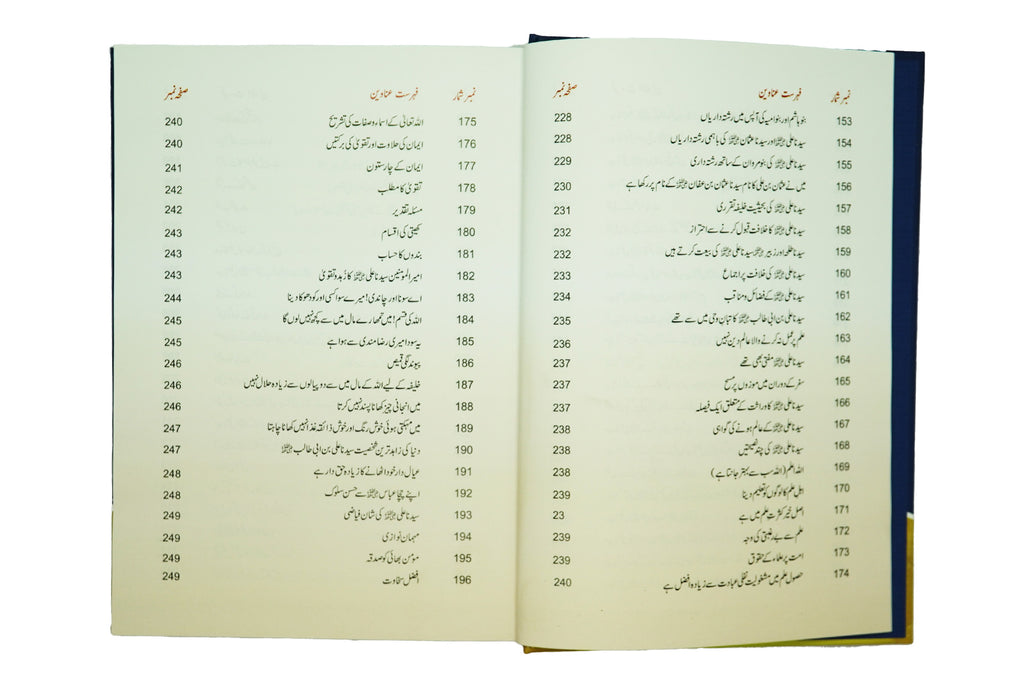 نمبر شمار فہرست عناوین صفحہ نمبر
153 بنو ہاشم اور بنو امیہ کی آپس میں رشتہ داریاں 228
154 سیدنا علی رضی اللہ عنہ اور سیدنا عثمان رضی اللہ عنہ کی باہمی رشتہ داریاں 228
155 سیدنا علی رضی اللہ عنہ کی بنو مروان کے ساتھ رشتہ داری 229
156 میں نے عثمان بن علی کا نام سیدنا عثمان بن عفان رضی اللہ عنہ کے نام پر رکھا ہے 230
157 سیدنا علی رضی اللہ عنہ کی بحیثیت خلیفہ تقرری 231
158 سیدنا علی رضی اللہ عنہ کا خلافت قبول کرنے سے احتراز 232
159 سیدنا طلحہ اور زبیر رضی اللہ عنہما سیدنا علی رضی اللہ عنہ کی بیعت کرتے ہیں 232
160 سیدنا علی رضی اللہ عنہ کی خلافت پر اجماع 233
161 سیدنا علی رضی اللہ عنہ کے فضائل و مناقب 234
162 سیدنا علی بن ابی طالب رضی اللہ عنہ کا تبان وحی میں سے تھے 235
163 علم پر عمل نہ کرنے والا عالم دین نہیں 236
164 سیدنا علی رضی اللہ عنہ مفتی بھی تھے 237
165 سفر کے دوران میں موزوں پر مسح 237
166 سیدنا علی رضی اللہ عنہ کا وراثت کے متعلق ایک فیصلہ 237
167 سیدنا علی رضی اللہ عنہ کے عالم ہونے کی گواہی 238
168 سیدنا علی رضی اللہ عنہ کی چند نصیحتیں 238
169 اللہ اعلم (اللہ سب سے بہتر جانتا ہے) 238
170 اہل علم کا لوگوں کو تعلیم دینا 239
171 اصل خیر کثرت علم میں ہے 23
172 علم سے بے رغبتی کی وجہ 239
173 امت پر علماء کے حقوق 239
174 حصول علم میں مشغولیت نفلی عبادت سے زیادہ افضل ہے 240
نمبر شمار فہرست عناوین صفحہ نمبر
175 اللہ تعالیٰ کے اسماء و صفات کی تشریح 240
176 ایمان کی حلاوت اور تقویٰ کی برکتیں 240
177 ایمان کے چار ستون 241
178 تقویٰ کا مطلب 242
179 مسئلہ تقدیر 242
180 کھیتی کی اقسام 243
181 بندوں کا حساب 243
182 امیر المومنین سیدنا علی رضی اللہ عنہ کا زہد و تقویٰ 243
183 اے سونا اور چاندی! میرے سوا کسی اور کو دھوکا دینا 244
184 اللہ کی قسم! میں تمھارے مال میں سے کچھ نہیں لوں گا 245
185 یہ سودا میری رضا مندی سے ہوا ہے 245
186 پیوند لگی قمیص 246
187 خلیفہ کے لیے اللہ کے مال میں سے دو پیالوں سے زیادہ حلال نہیں 246
188 میں انجانی چیز کھانا پسند نہیں کرتا 246
189 میں مہکتی ہوئی خوش رنگ اور خوش ذائقہ غذا نہیں کھانا چاہتا 247
190 دنیا کی زاہد ترین شخصیت سیدنا علی بن ابی طالب رضی اللہ عنہ 247
191 عیال دار خود اٹھانے کا زیادہ حق دار ہے 248
192 اپنے چچا عباس رضی اللہ عنہ سے حسن سلوک 248
193 سیدنا علی رضی اللہ عنہ کی شان فیاضی 249
194 مہمان نوازی 249
195 مؤمن بھائی کو صدقہ 249
196 افضل سخاوت 249